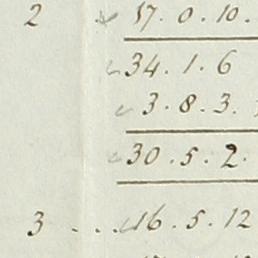 2 17. 0. 10.
34. 1. 6
3. 8. 3.
30. 5. 2.
3 . . . 16. 5. 12